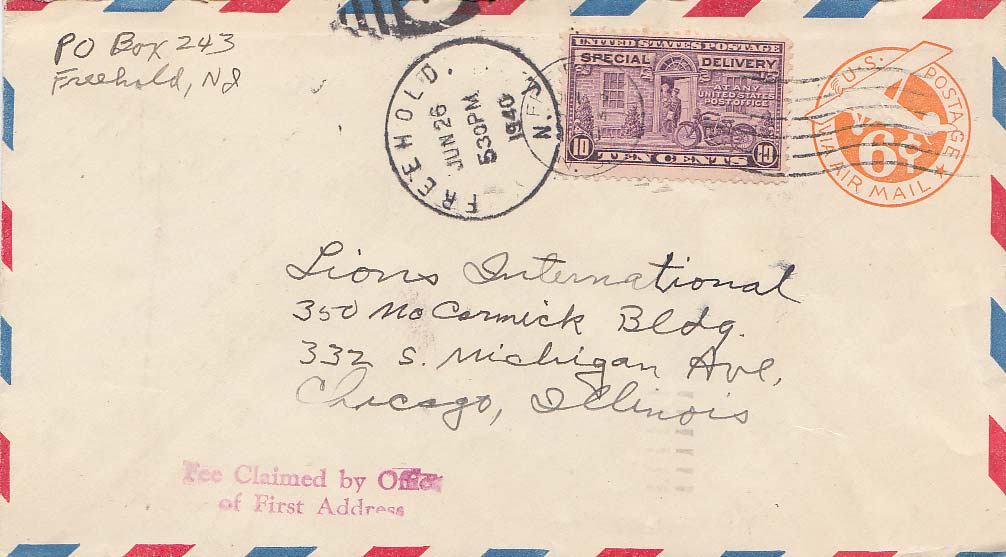 PO Box 243
Freehold, NJ
FREEHOLD.
JUN 26
5 30 PM
1940
N.
UNITED STATES POSTAGE
SPECIAL DELIVERY
AT ANY
UNITED STATES
POST OFFICE
10 TEN CENTS 10
U.S. POSTAGE
6¢
VIA AIR MAIL
Lions International
350 McCormick Bldg.
332 S. Michigan Ave,
Chicago, Illinois
Fee Claimed by Office
of First Address